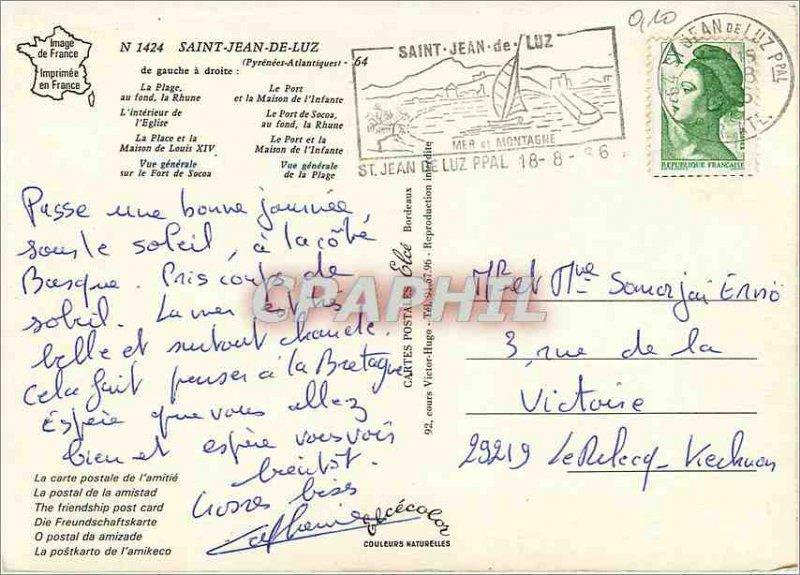 0,10
Image
de France
Imprimée
en France
N 1424 SAINT-JEAN-DE-LUZ
(Pyrénées-Atlantiques) - 64
de gauche à droite :
La Plage,
au fond, la Rhune
Le Port
et la Maison de l'Infante
L'intérieur de
l'Eglise
Le Port de Socoa,
au fond, la Rhune
La Place et la
Maison de Louis XIV
Le Port et la
Maison de l'Infante
Vue générale
sur le Fort de Socoa
Vue générale
de la Plage
SAINT-JEAN-de-LUZ
MER et MONTAGNE
ST. JEAN DE LUZ PPAL 18-8-86
JEAN DE LUZ PPAL
REPUBLIQUE FRANÇAISE
Passe une bonne journée
sous le soleil, à la côte
Basque. Pris coups de
soleil. La mer est
belle et surtout chaude.
Cela fait penser à la Bretagne
Espère que vous allez
bien et espère vous voir
bientôt.
Grosses bises
CARTES POSTALES Elcé Bordeaux
92, cours Victor-Hugo - Tél. 91.67.96 - Reproduction interdite
CPAPHIL
Mr et Mme Somorjai Ernö
3, rue de la
Victoire
29219 Le Relecq-Kerhuon
La carte postale de l'amitié
La postal de la amistad
The friendship post card
Die Freundschaftskarte
O postal da amizade
La poŝtkarto de l'amikeco
COULEURS NATURELLES